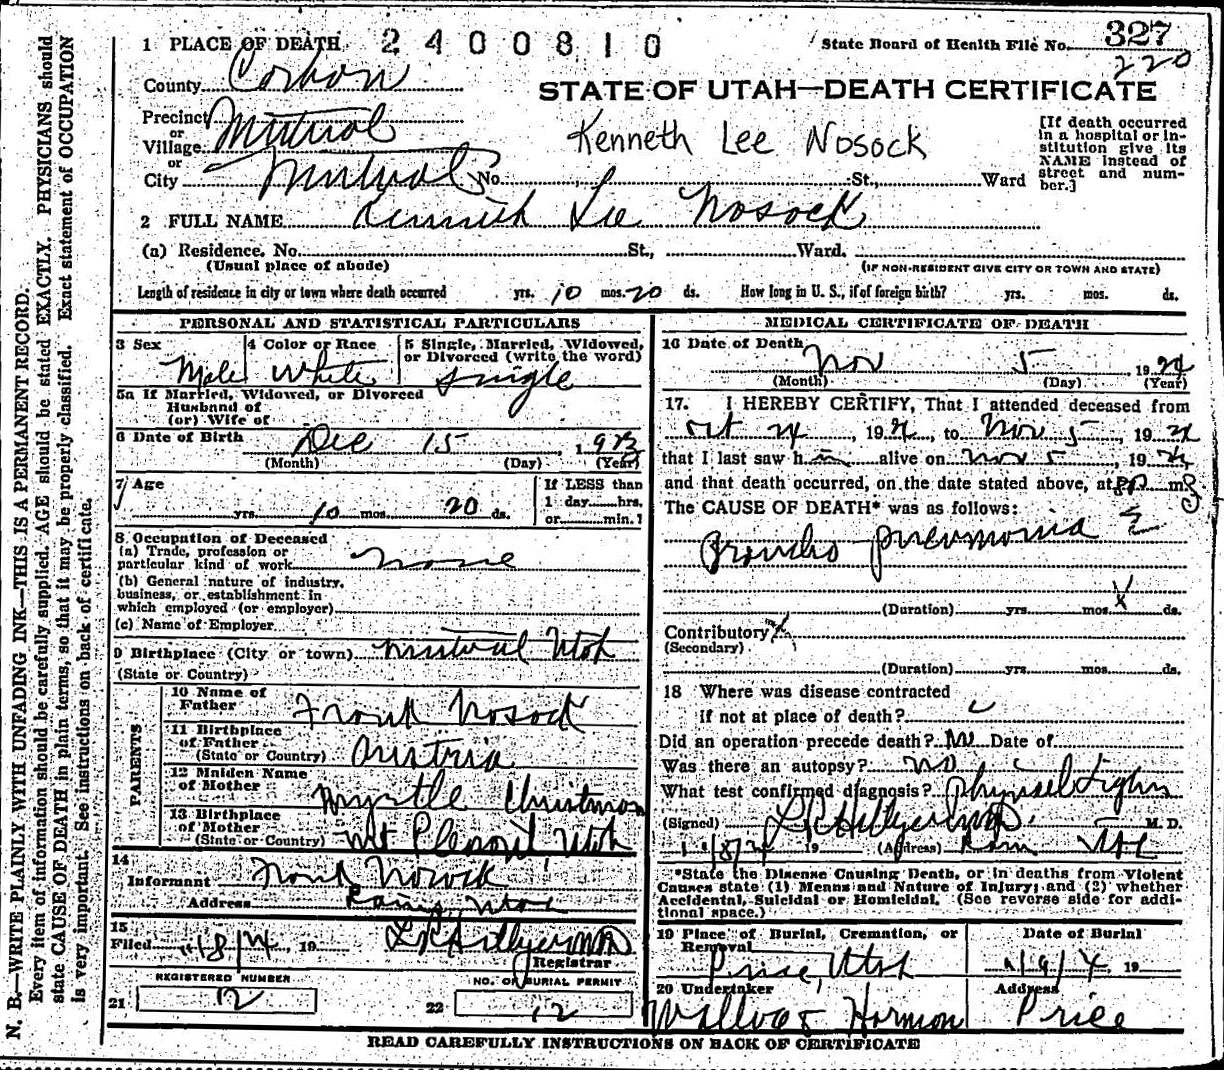 1 PLACE OF DEATH 2400810
State Board of Health File No. 327
220
County Carbon
STATE OF UTAH—DEATH CERTIFICATE
Precinct
or
Village Mutual
or
City Mutual No. St., Ward
Kenneth Lee Nosock
[If death occurred
in a hospital or in-
stitution give its
NAME instead of
street and num-
ber.]
2 FULL NAME Kenneth Lee Nosock
(a) Residence. No. St., Ward.
(Usual place of abode) (IF NON-RESIDENT GIVE CITY OR TOWN AND STATE)
Length of residence in city or town where death occurred yrs. 10 mos. 20 ds. How long in U. S., if of foreign birth? yrs. mos. ds.
PERSONAL AND STATISTICAL PARTICULARS
3 Sex Male
4 Color or Race White
5 Single, Married, Widowed,
or Divorced (write the word)
Single
5a If Married, Widowed, or Divorced
Husband of
(or) Wife of
6 Date of Birth Dec 15, 1923
(Month) (Day) (Year)
7 Age
yrs. 10 mos. 20 ds.
If LESS than
1 day hrs.
or min.?
8 Occupation of Deceased
(a) Trade, profession or
particular kind of work none
(b) General nature of industry,
business, or establishment in
which employed (or employer)
(c) Name of Employer
9 Birthplace (City or town) Mutual Utah
(State or Country)
PARENTS
10 Name of
Father Frank Nosock
11 Birthplace
of Father
(State or Country) Austria
12 Maiden Name
of Mother Myrtle Christman
13 Birthplace
of Mother
(State or Country) Mt Pleasant, Utah
14
Informant Frank Nosock
Address Rains, Utah
15
Filed 11/8/24, 19 L R Hillyer MD
Registrar
REGISTERED NUMBER
21 12
NO. OF BURIAL PERMIT
22 12
MEDICAL CERTIFICATE OF DEATH
16 Date of Death
Nov 5 1924
(Month) (Day) (Year)
17. I HEREBY CERTIFY, That I attended deceased from
Oct 24, 1924, to Nov 5, 1924
that I last saw him alive on Nov 5, 1924
and that death occurred, on the date stated above, at m.
The CAUSE OF DEATH* was as follows:
Broncho pneumonia
(Duration) yrs. mos. ds.
Contributory
(Secondary)
(Duration) yrs. mos. ds.
18 Where was disease contracted
if not at place of death?
Did an operation precede death? No Date of
Was there an autopsy? no
What test confirmed diagnosis? Physical Signs
(Signed) L R Hillyer MD. M. D.
11/8/24 19 (Address) Rains Utah
*State the Disease Causing Death, or in deaths from Violent
Causes state (1) Means and Nature of Injury; and (2) whether
Accidental, Suicidal or Homicidal. (See reverse side for addi-
tional space.)
19 Place of Burial, Cremation, or
Removal
Price, Utah
Date of Burial
11/9/24 19
20 Undertaker
Wallace & Harmon
Address
Price
READ CAREFULLY INSTRUCTIONS ON BACK OF CERTIFICATE
N. B.—WRITE PLAINLY WITH UNFADING INK—THIS IS A PERMANENT RECORD.
Every item of information should be carefully supplied. AGE should be stated EXACTLY. PHYSICIANS should
state CAUSE OF DEATH in plain terms, so that it may be properly classified. Exact statement of OCCUPATION
is very important. See instructions on back of certificate.